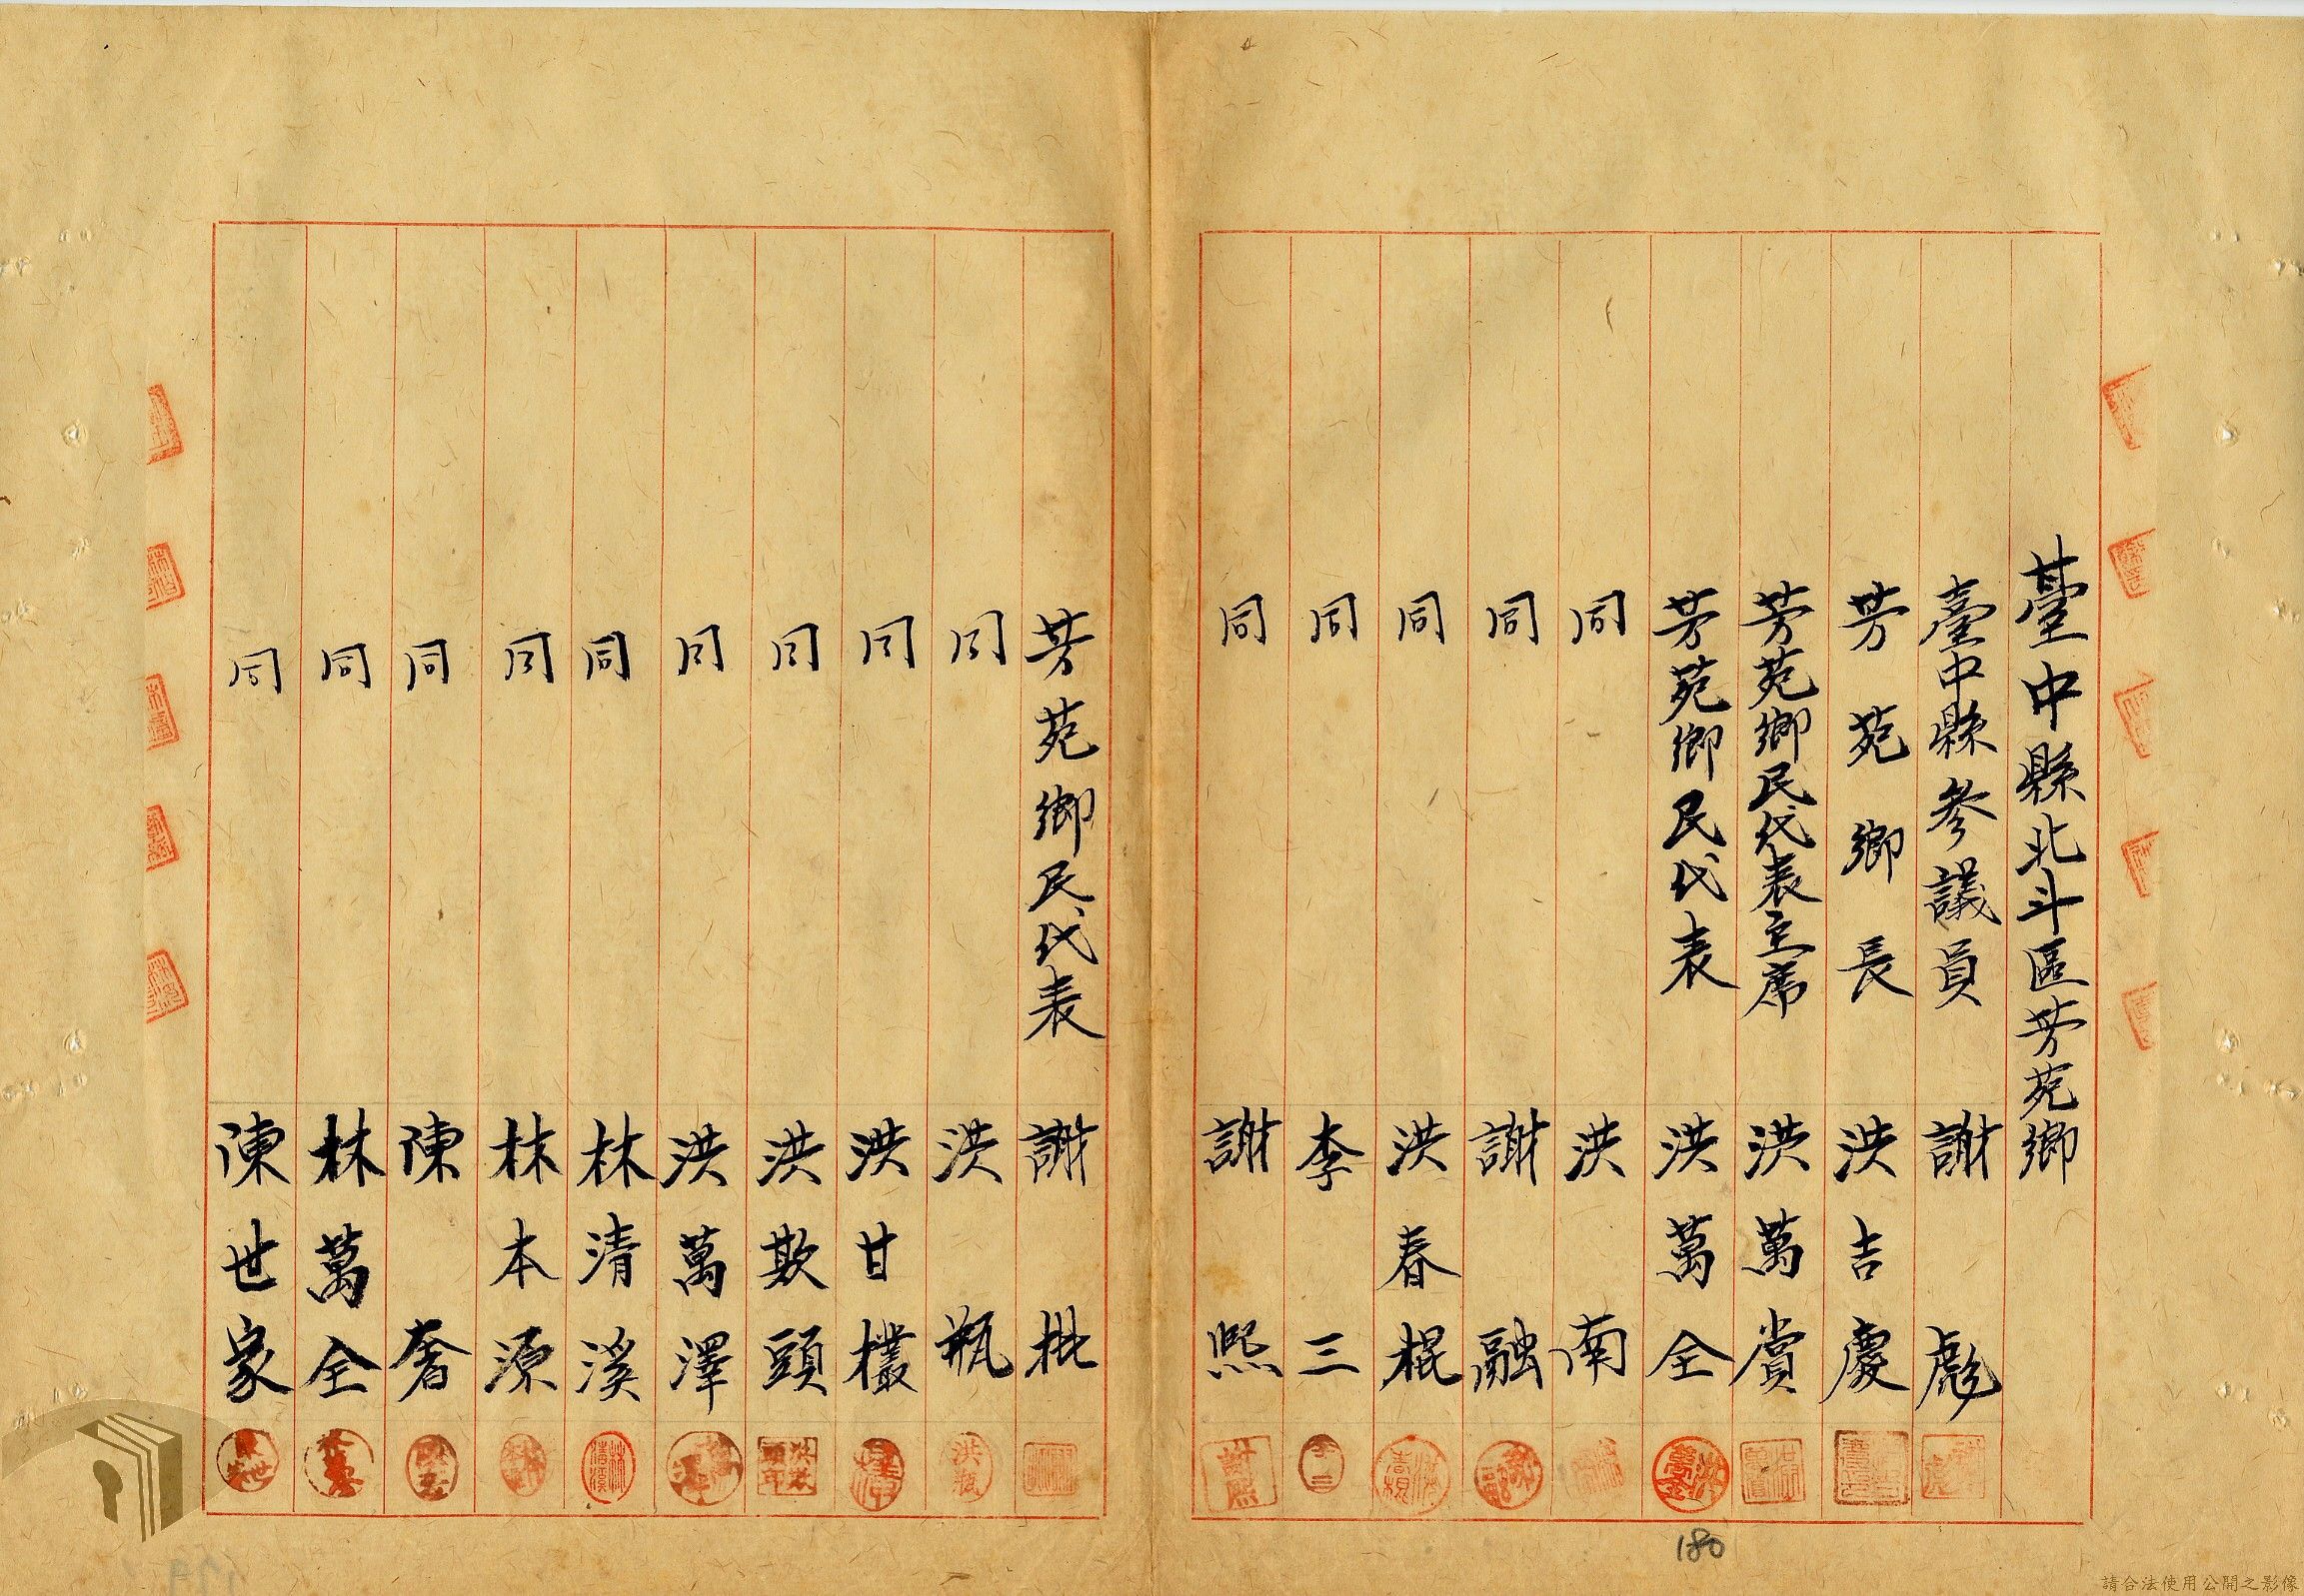 臺中縣北斗區芳苑鄉
臺中縣參議員 謝彪
芳苑鄉長 洪吉慶
芳苑鄉民代表主席 洪萬賞
芳苑鄉民代表 洪萬全
同 洪南
同 謝融
同 洪春棍
同 李三
同 謝熙
芳苑鄉民代表 謝批
同 洪瓶
同 洪甘欉
同 洪欺頭
同 洪萬澤
同 林清溪
同 林本源
同 陳奢
同 林萬全
同 陳世家
180
請合法使用公開之影像